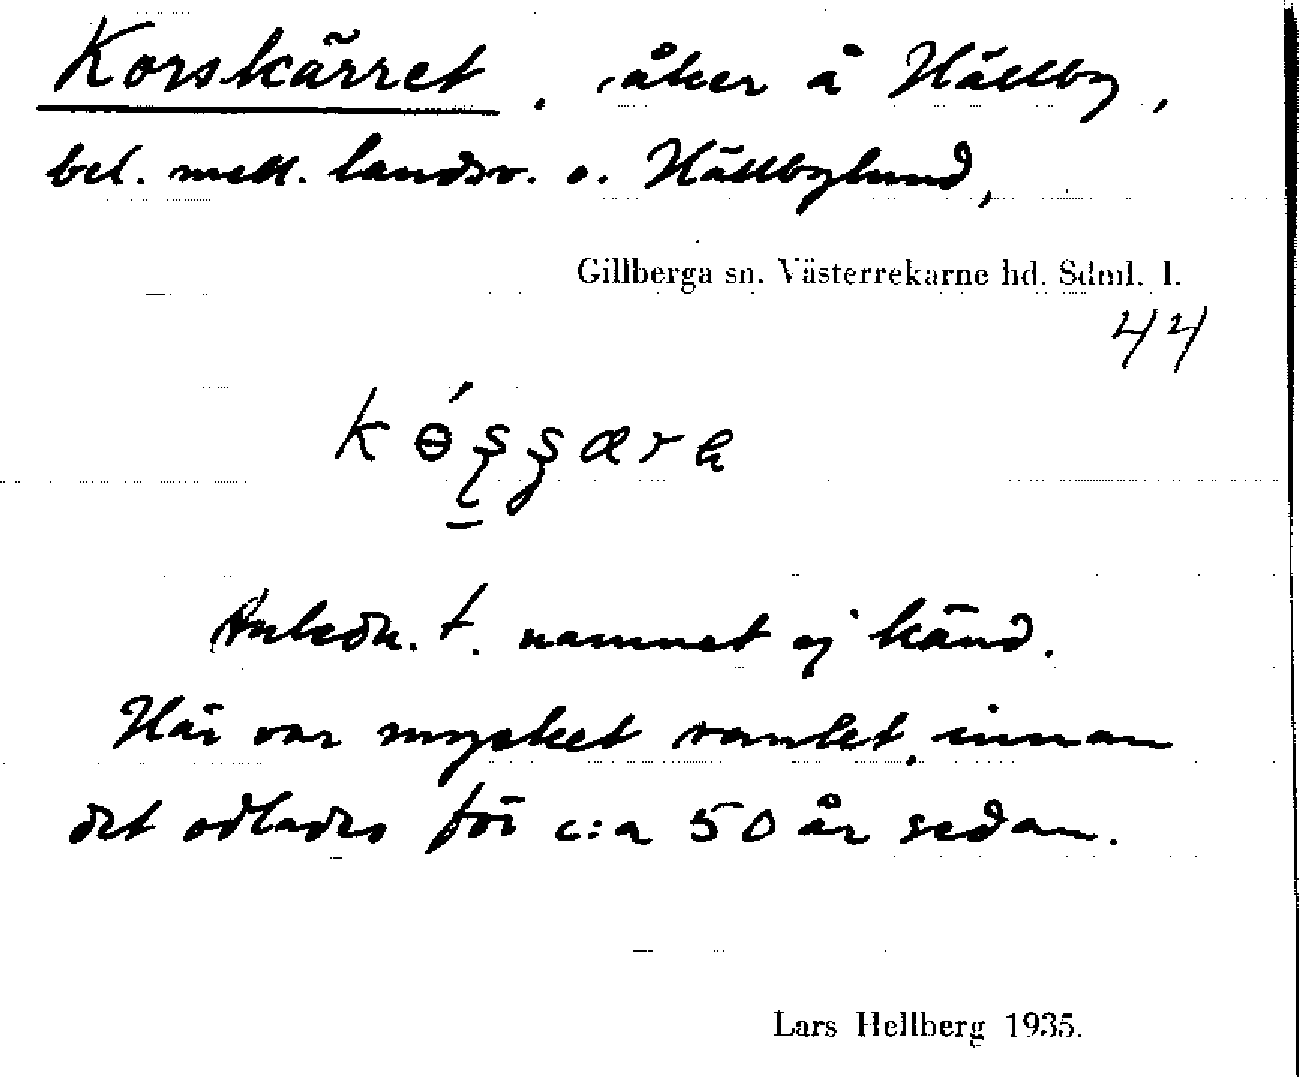 Korskärret, åker å Hällby,
bel. mell. landsv. o. Hällbylund,
Gillberga sn. Västerrekarne hd. Sdml. l.
44
Anledn. t. namnet ej känd.
Här var mycket vanket, innan
det odlades för c:a 50 år sedan.
Lars Hellberg 1935.